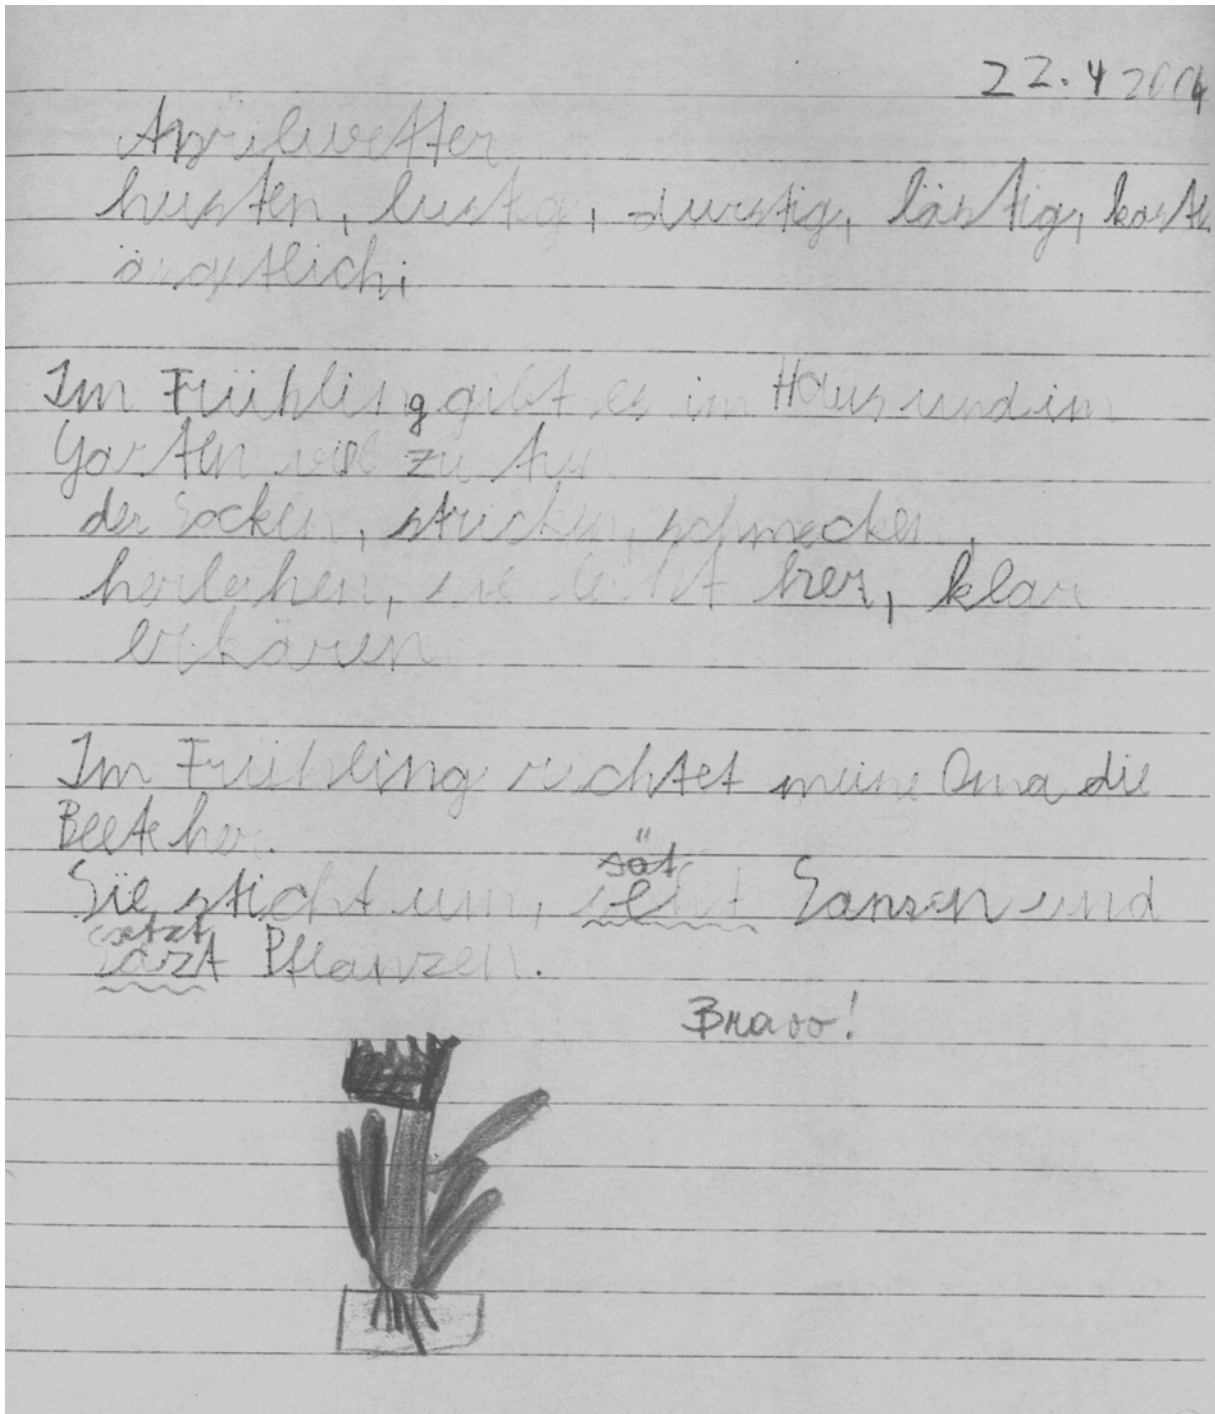 22.4 2004
Aprilwetter
husten, lustig, durstig, lästig, kosten
ängstlich;
Im Frühling gibt es im Haus und im
Garten viel zu tun
der Socken, stricken, schmecken,
herleihen, sie leiht her, klar
erkären
Im Frühling richtet meine Oma die
Beete her.
sät
Sie sticht um, Samsen und
setzt
Särzt Pflanzen.
Bravo!